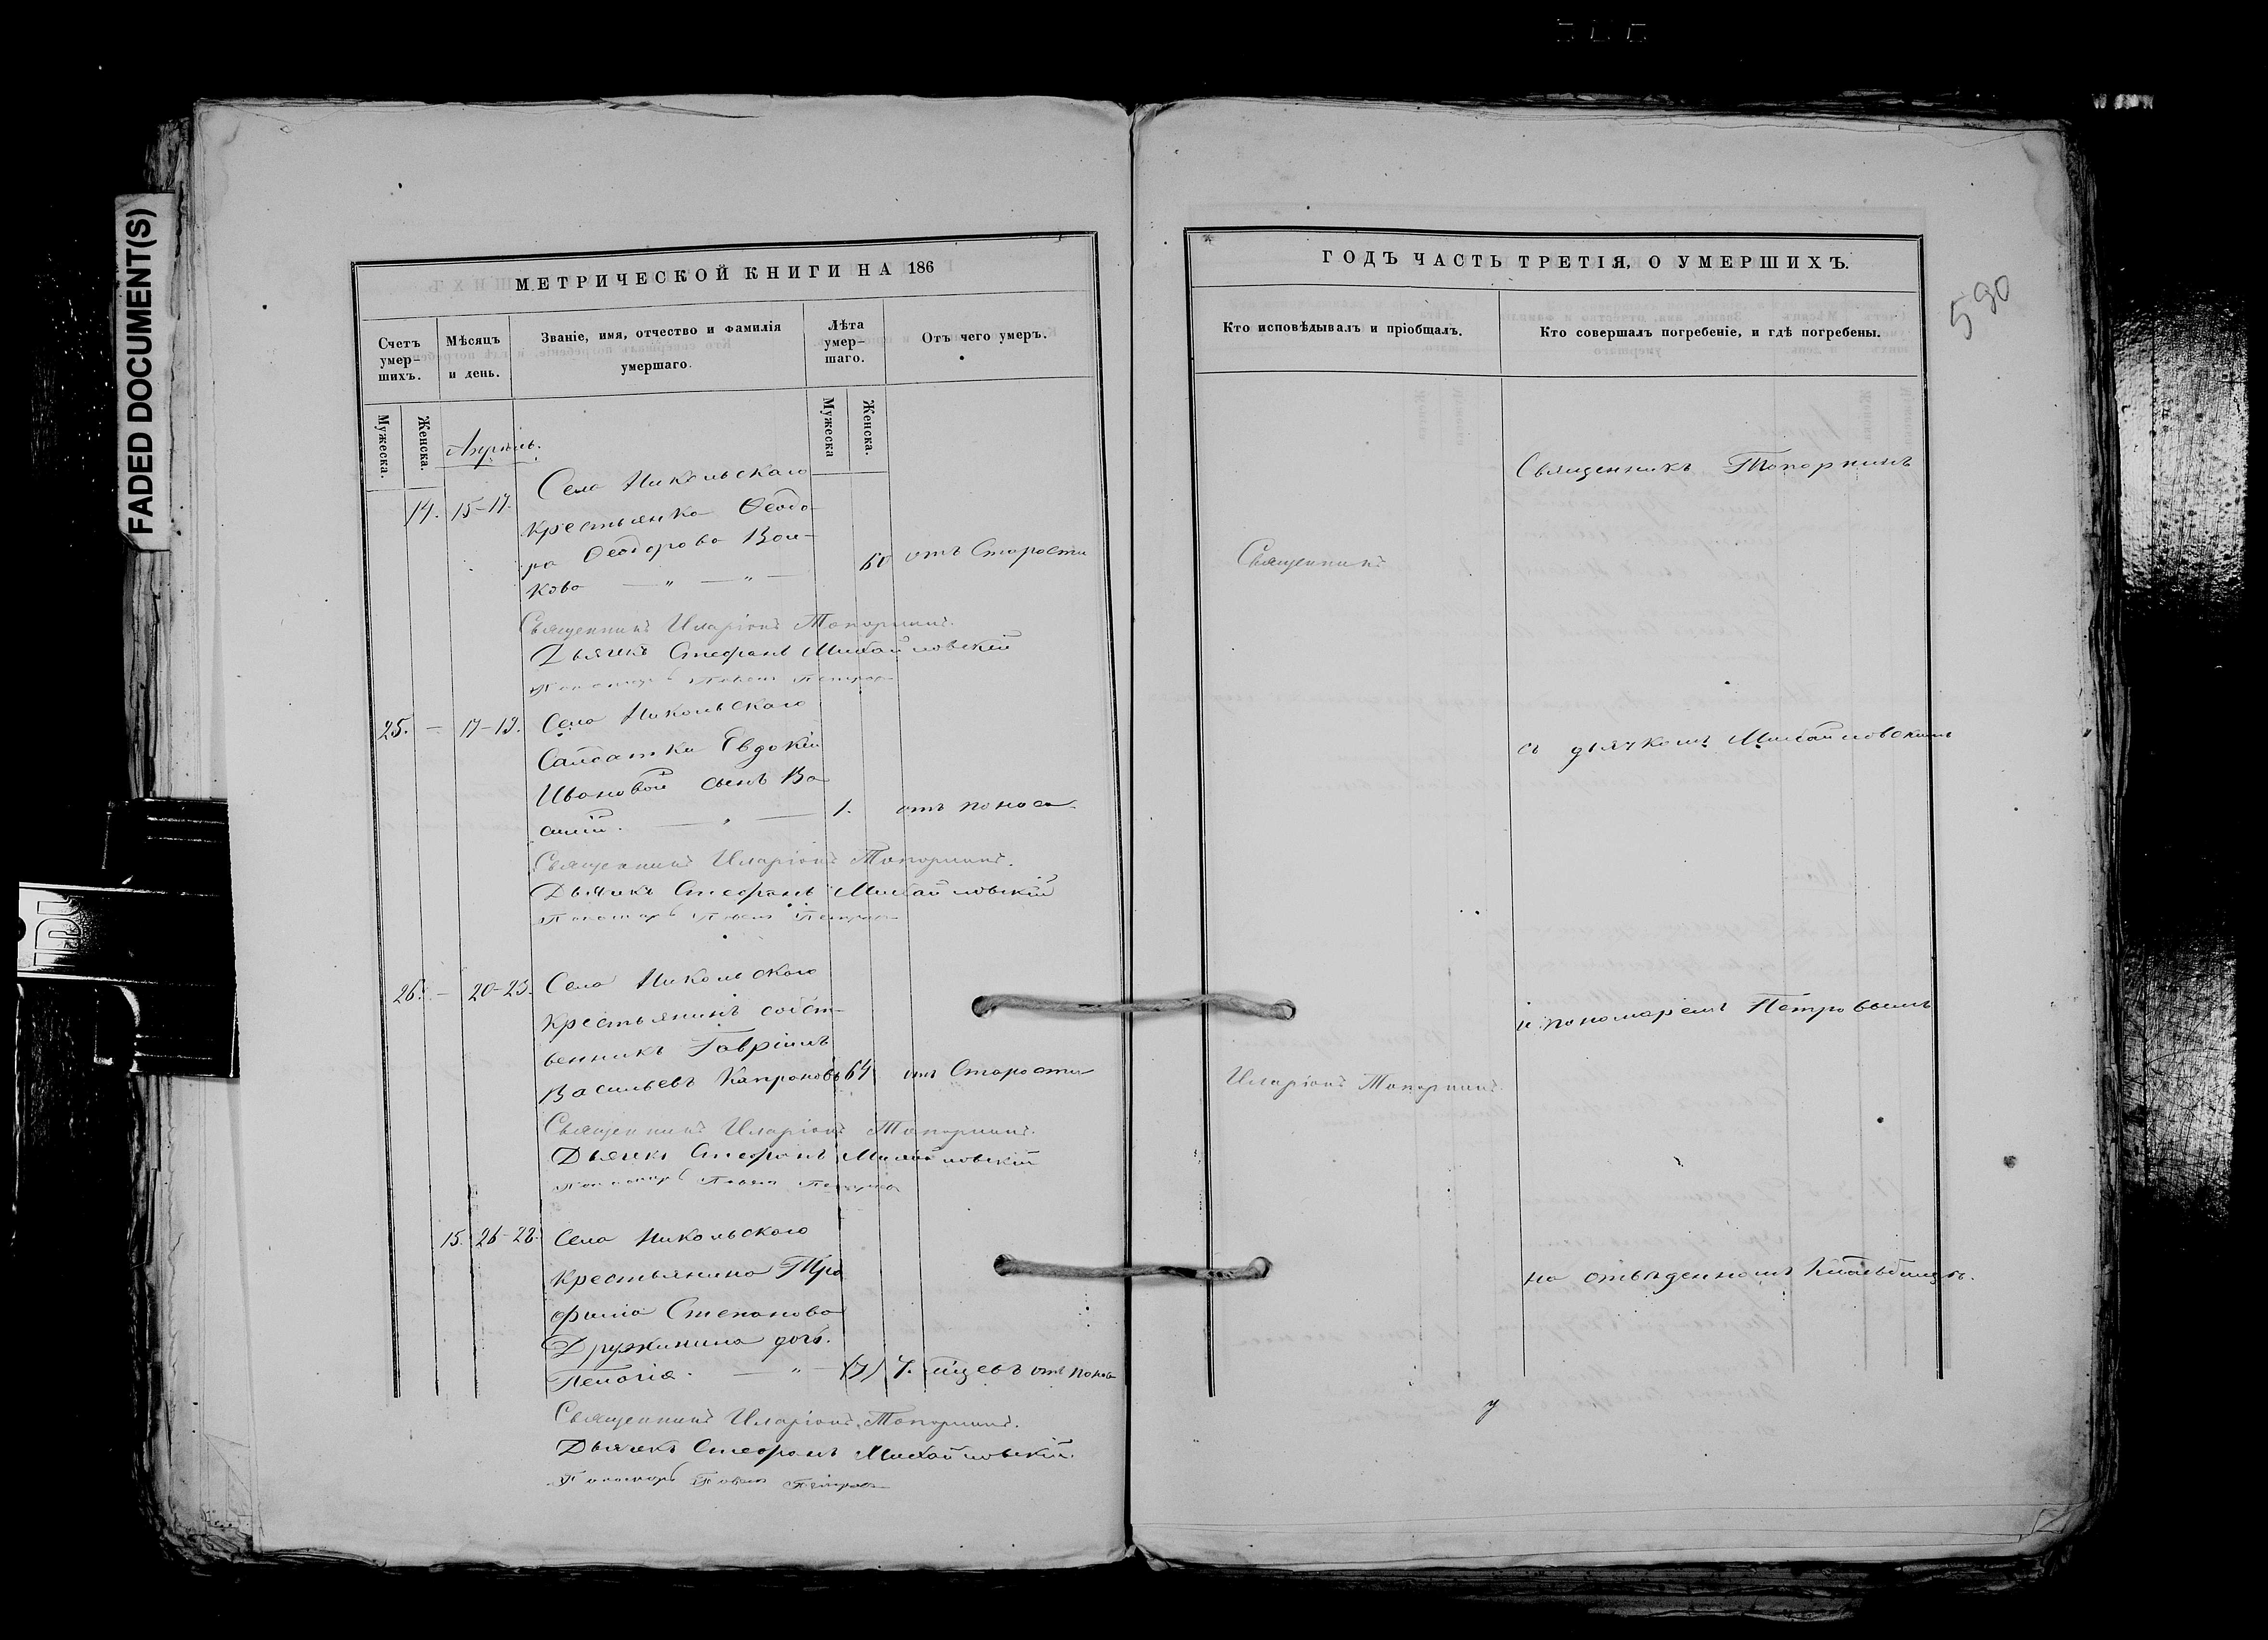 FADED DOCUMENT(S)
МЕТРИЧЕСКОЙ КНИГИ НА 186
Счетъ умер-
шихъ.
Мѣсяцъ
и день.
Званіе, имя, отчество и фамилія
умершаго.
Лѣта
умер-
шаго.
Отъ чего умеръ.
Мужеска.
Женска.
Мужеска
Женска.
Апрѣль.
14. 15-17. Села Никольскаго
крестьянка Ѳеодо-
ра Ѳеодорова Вол-
кова — „ — „ — отъ Старости
Священникъ Иларіонъ Топорнинъ.
Дьячекъ Стефанъ Михайловскій
Пономарь Павелъ Петровъ
25. — 17-19. Села Никольскаго
Салдатки Евдокіи
Ивановой сынъ Ва-
силій. — „ — 1. отъ поноса
Священникъ Иларіонъ Топорнинъ.
Дьячекъ Стефанъ Михайловскій
Пономарь Павелъ Петровъ
26. — 20-23. Села Никольскаго
Крестьянинъ собст-
венникъ Гавріилъ
Васильевъ Капроновъ 64 отъ Старости
Священникъ Иларіонъ Топорнинъ.
Дьячекъ Стефанъ Михайловскій
Пономарь Павелъ Петровъ
15. 26-28. Села Никольскаго
Крестьянина Тро
фима Степанова
Дружинина дочь
Пелагія. — „ — 7. мѣцевъ отъ поноса
Священникъ Иларіонъ Топорнинъ.
Дьячекъ Стефанъ Михайловскій.
Пономарь Павелъ Петровъ
ГОДЪ ЧАСТЬ ТРЕТІЯ, О УМЕРШИХЪ.
590
Кто исповѣдывалъ и пріобщалъ.
Кто совершалъ погребеніе, и гдѣ погребены.
Священникъ Топорнинъ
Священникъ
съ дьячкомъ Михайловскимъ
и пономаремъ Петровымъ
Иларіонъ Топорнинъ.
на отведенномъ Кладбищѣ.